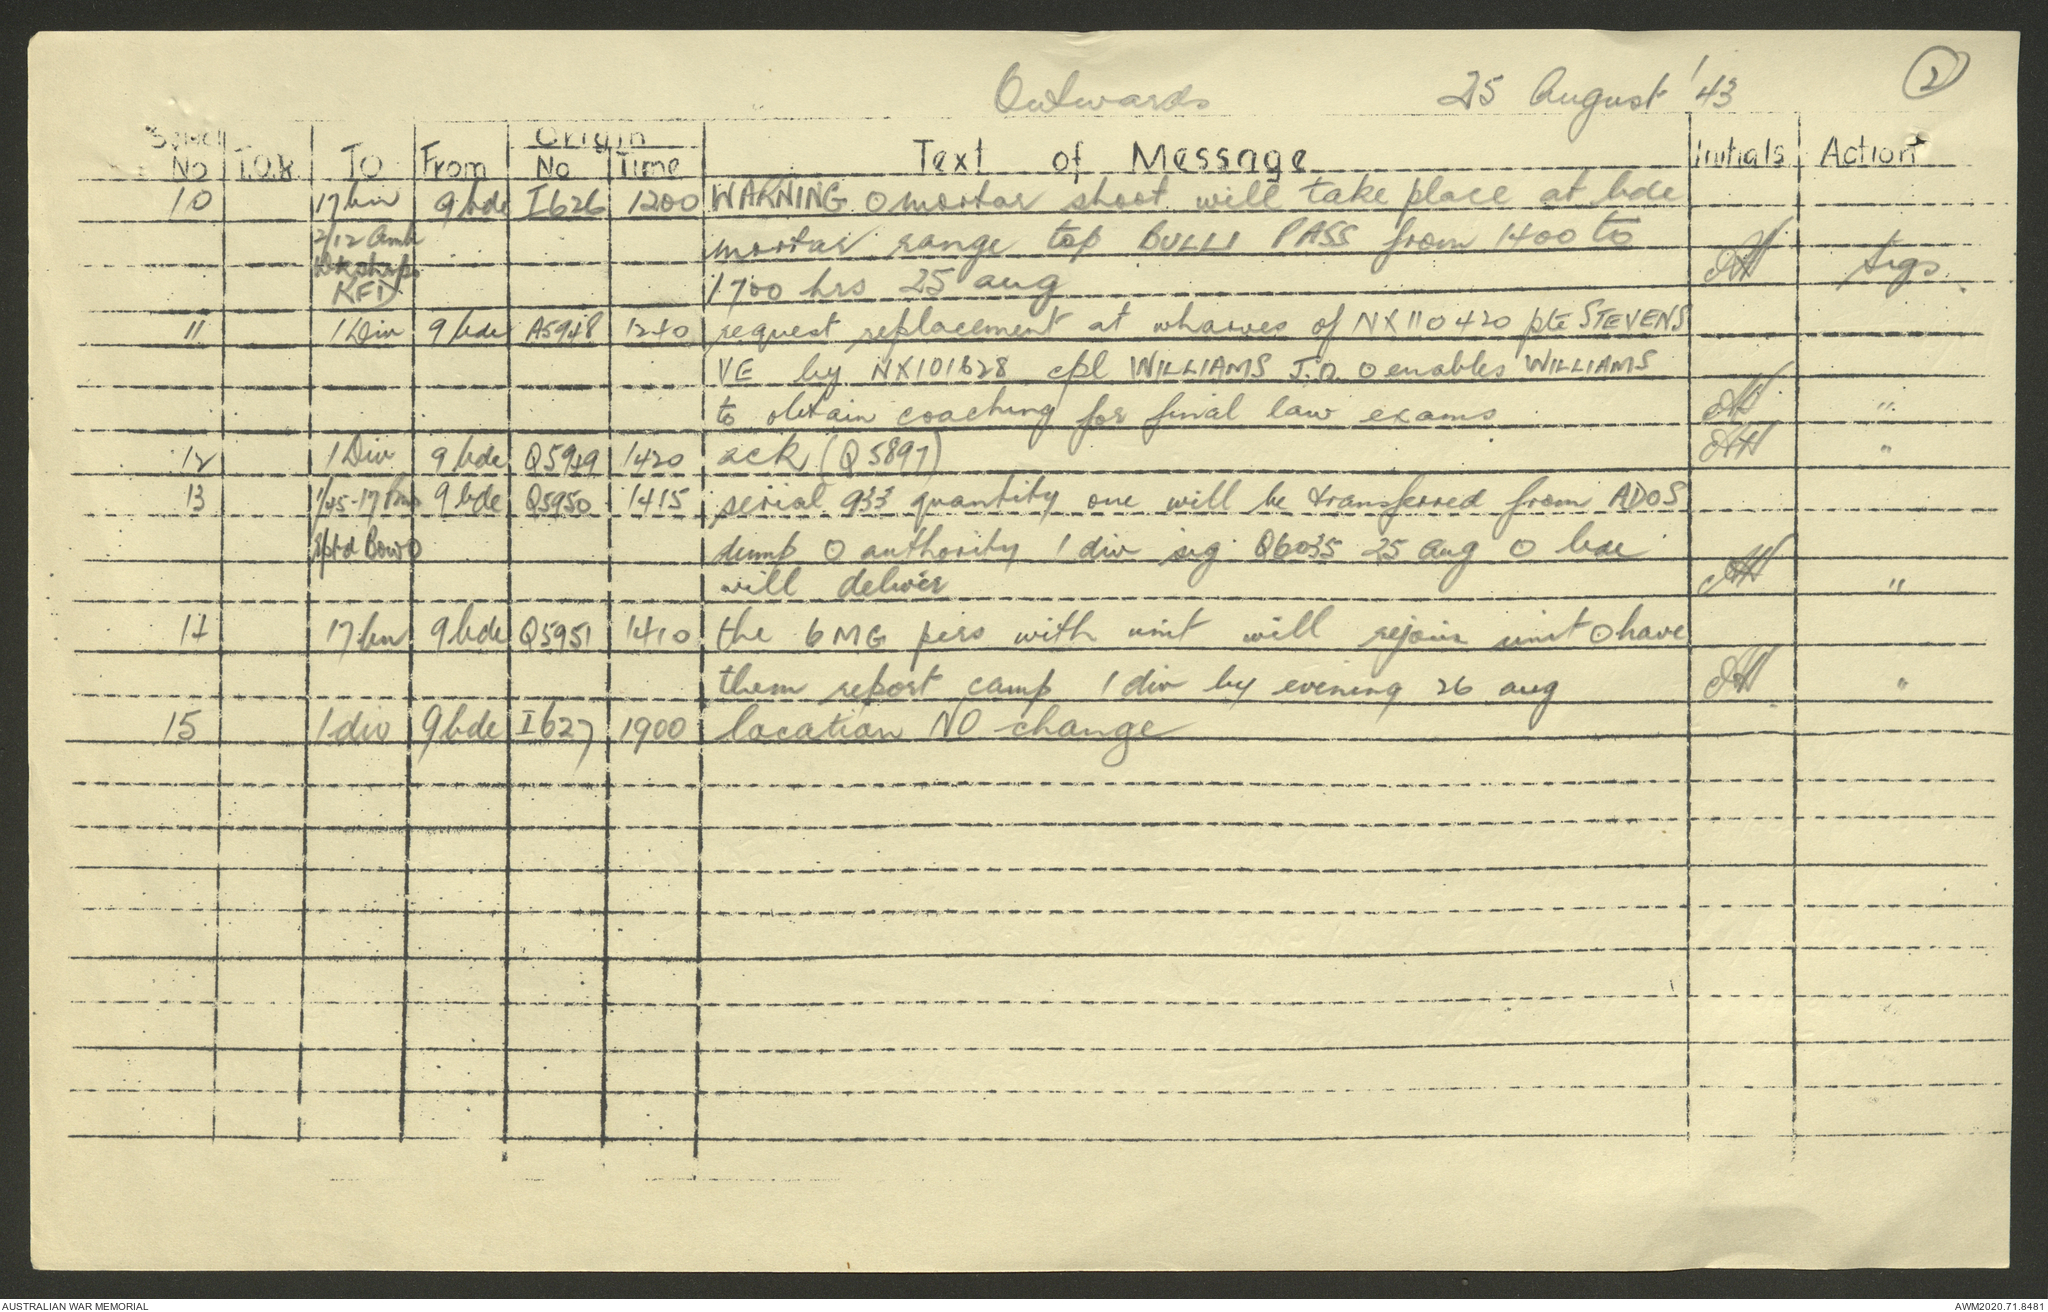 Outwards 25 August '43 2
Serial Origin
No T.O.R. TO From No Time Text of Message Initials Action
10 17 bn 9 bde I626 1200 WARNING O mortar shoot will take place at bde
2/12 Amb mortar range top BULLI PASS from 1400 to
Wkshops
RFD 1700 hrs 25 aug AH Sigs
11 1 Div 9 bde A5948 1240 request replacement at wharves of NX110420 pte STEVENS
VE by NX101628 cpl WILLIAMS J.O. O enables WILLIAMS
to obtain coaching for final law exams AH "
12 1 Div 9 bde Q5949 1420 ack (Q5897) AH "
13 1/45-17 bns 9 bde Q5950 1415 serial 933 quantity one will be transferred from ADOS
Rptd BowO dump O authority 1 div sig Q6035 25 aug O bde
will deliver AH "
14 17 bn 9 bde Q5951 1410 the 6 MG pers with unit will rejoin unit O have
them report camp 1 div by evening 26 aug AH "
15 1 div 9 bde I627 1900 location NO change
AUSTRALIAN WAR MEMORIAL AWM2020.71.8481